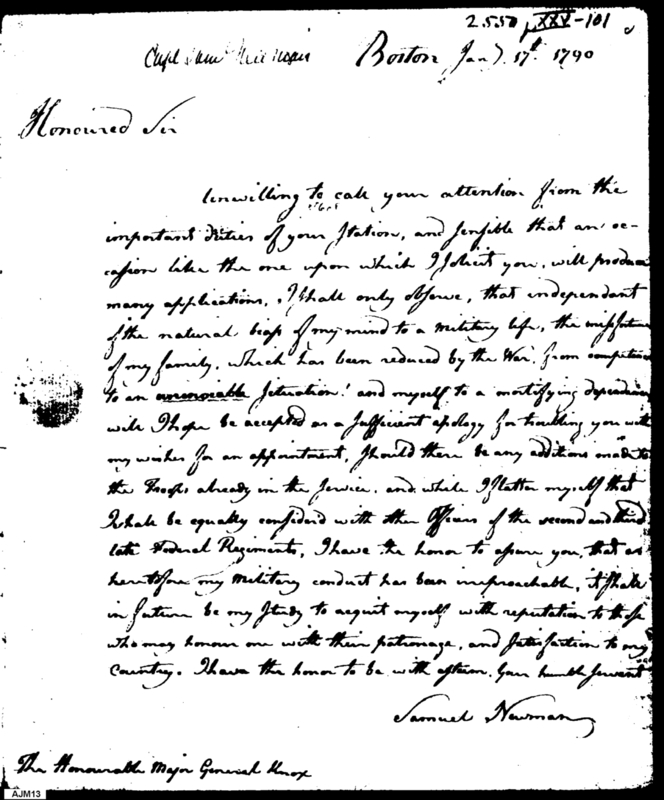 2550 XXV-101
Capt Sam.l Newman Boston Jan.y 17th 1790
Honoured Sir
Unwilling to call your attention from the
important duties of your Station, and sensible that an oc-
cassion like the one upon which I solicit you, will produce
many applications, I shall only observe, that independant
of the natural biass of my mind to a Military life, the misfortune
of my family, which has been reduced by the War, from competence
to an Situation! and myself to a mortifying dependance
will I hope be accepted as a sufficient apology for troubling you with
my wishes for an appointment, should there be any additions made to
the Troops already in the Service, and while I flatter myself that
I shall be equally considerd with other Officers of the second and third
late Federal Regiments, I have the honor to assure you, that as
heretofore my Military conduct has been irreproachable, it shall
in future be my study to acquit myself with reputation to those
who may honour me with their patronage, and satisfaction to my
Country. I have the honor to be with esteem, Your humble Servant
Samuel Newman
The Honourable Major General Knox
AJM13